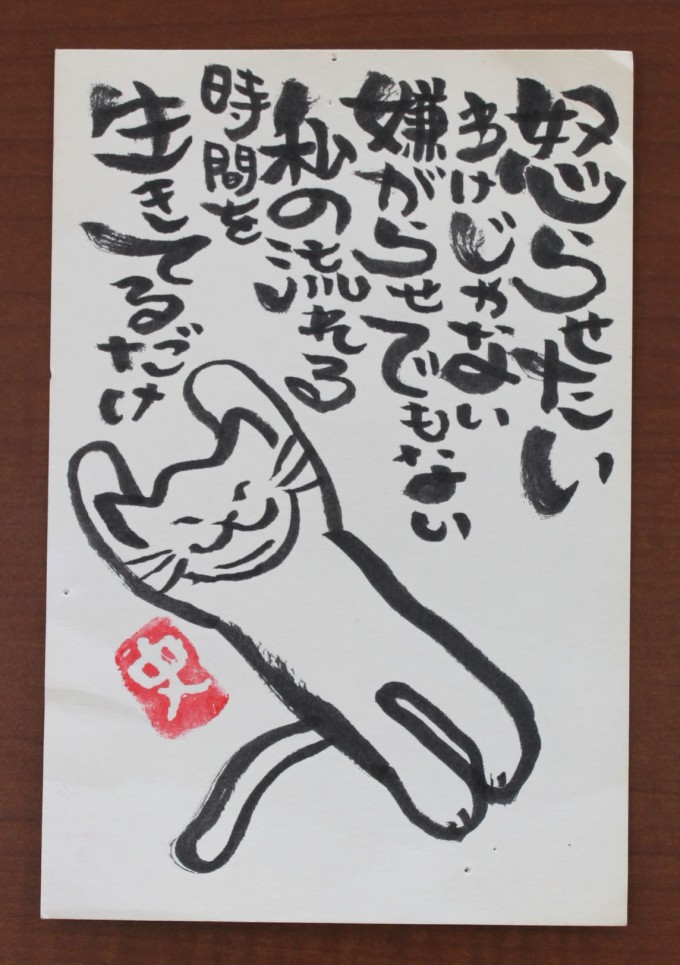 怒らせたい
わけじゃない
嫌がらせでもない
私の流れる
時間を
生きてるだけ